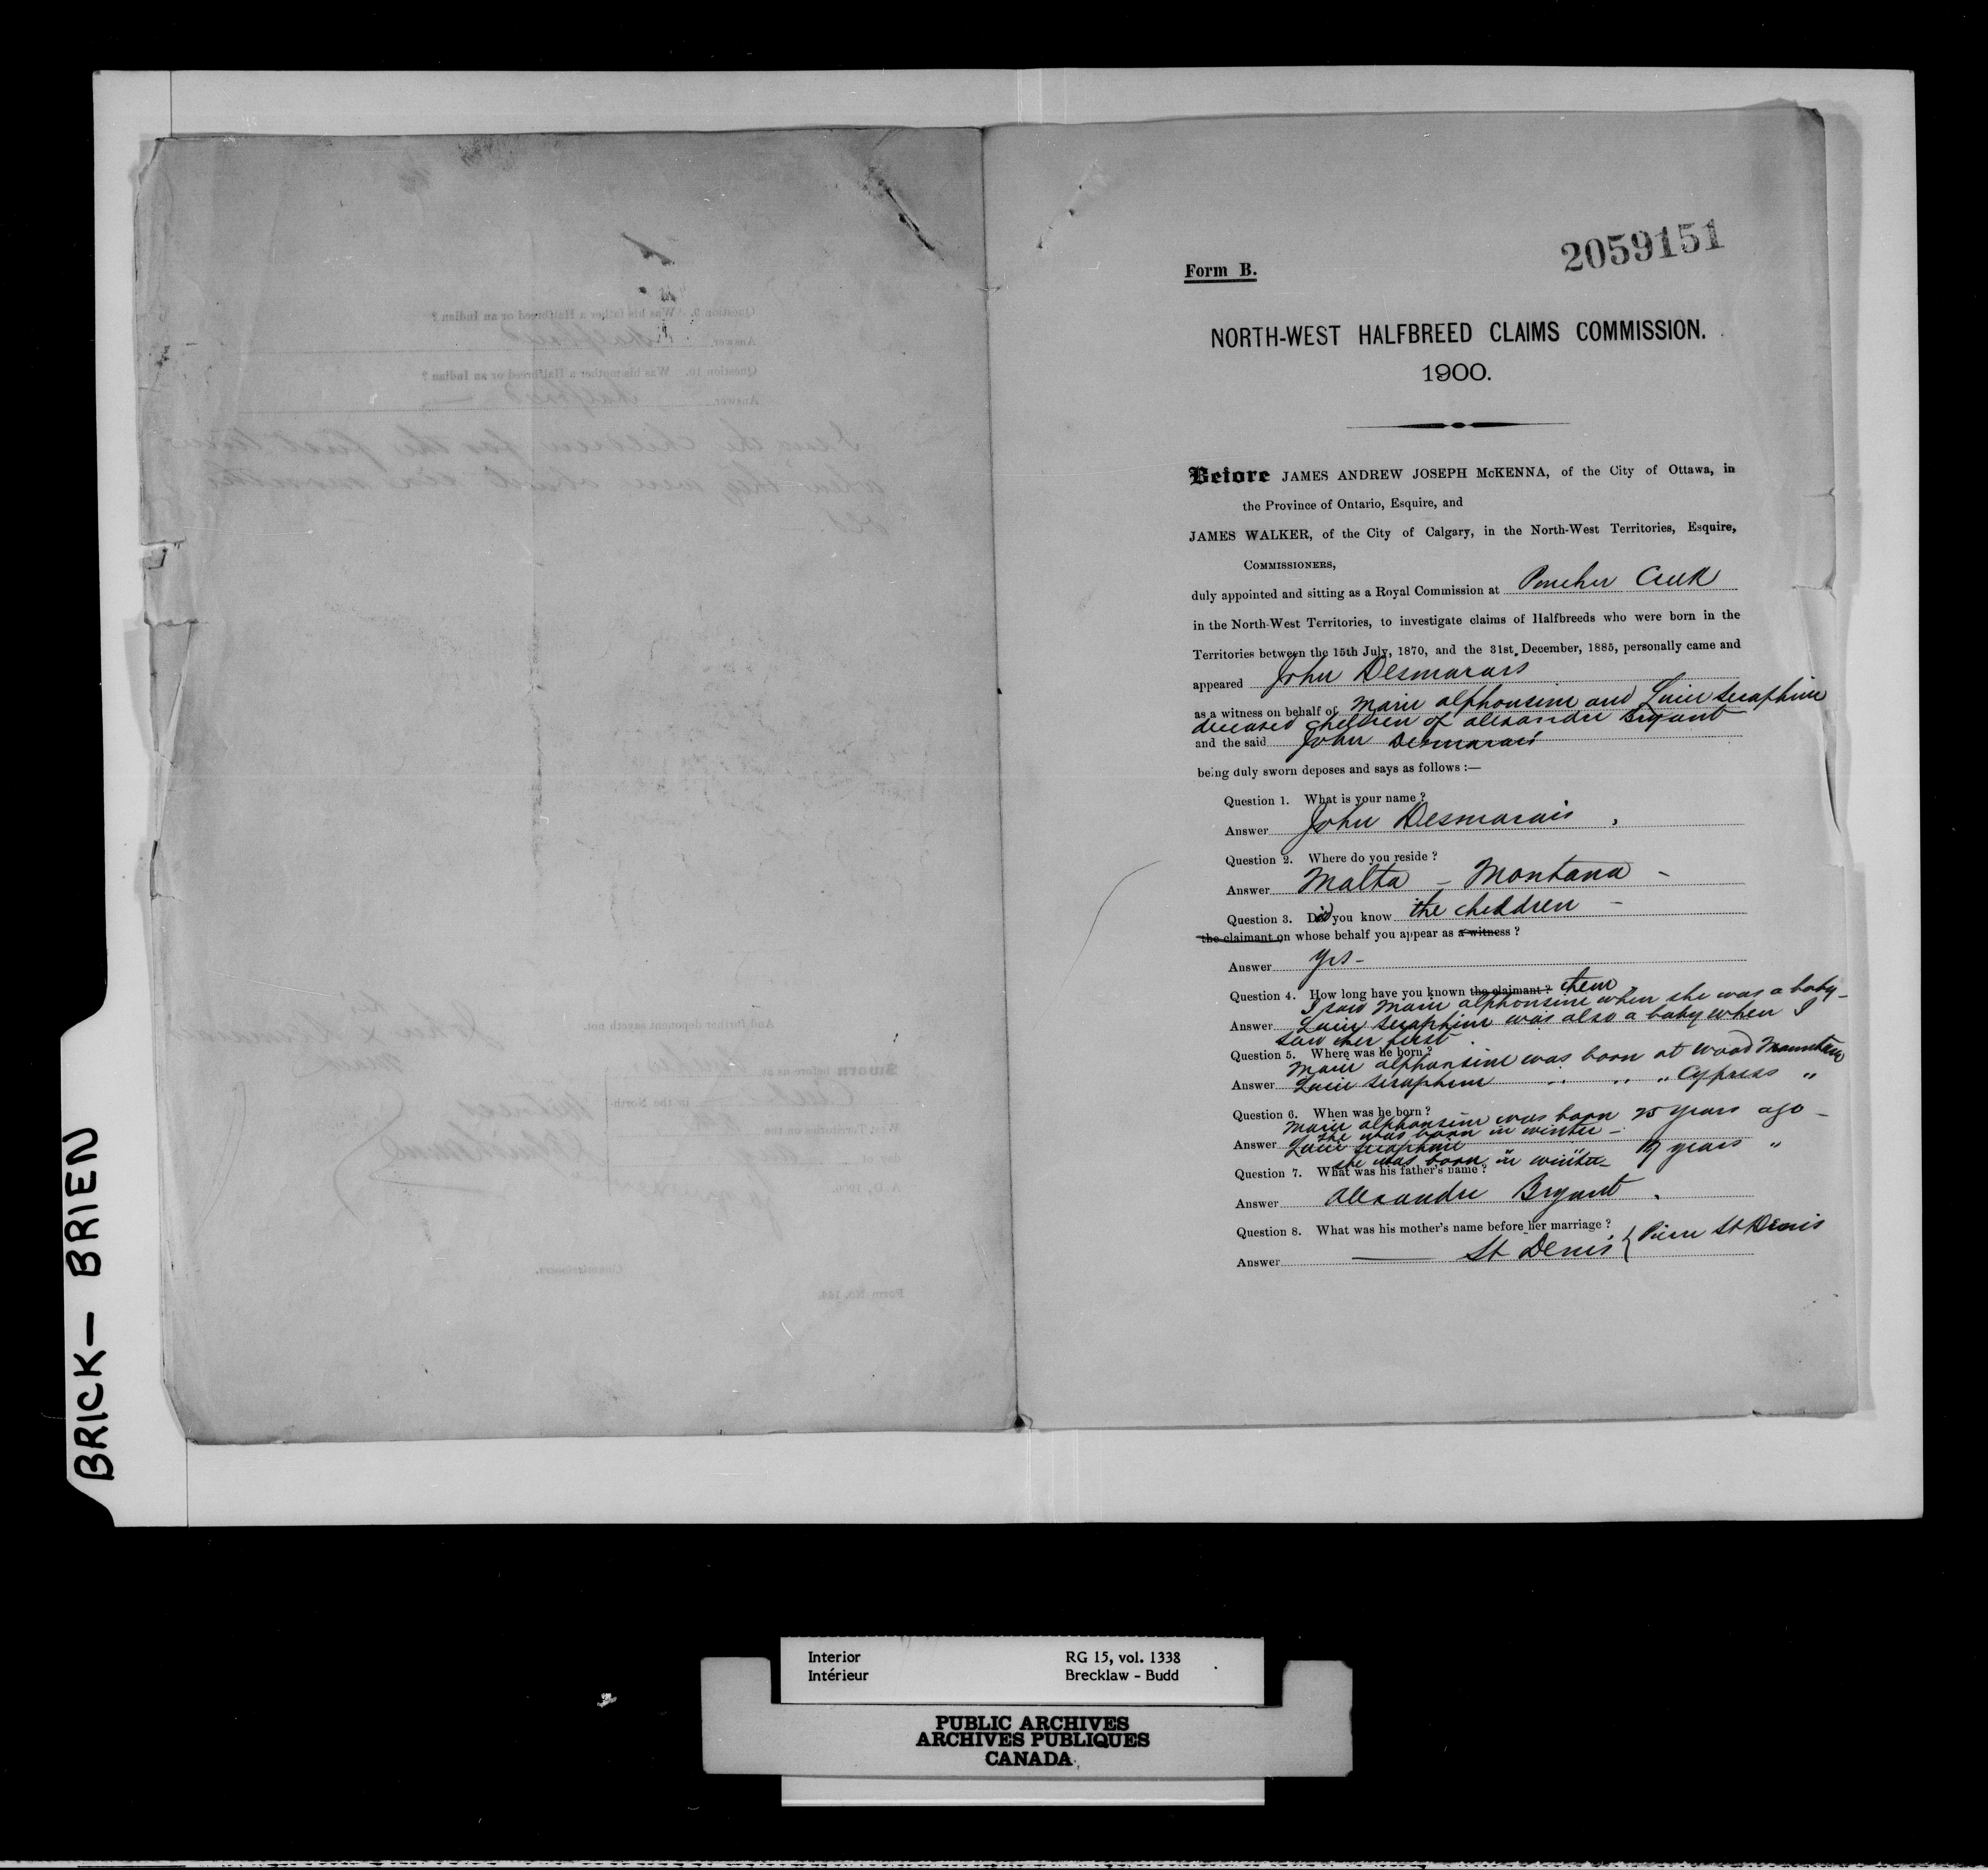 2059151
Form B.
NORTH-WEST HALFBREED CLAIMS COMMISSION.
1900.
Before JAMES ANDREW JOSEPH McKENNA, of the City of Ottawa, in
the Province of Ontario, Esquire, and
JAMES WALKER, of the City of Calgary, in the North-West Territories, Esquire,
COMMISSIONERS,
duly appointed and sitting as a Royal Commission at Pincher Creek
in the North-West Territories, to investigate claims of Halfbreeds who were born in the
Territories between the 15th July, 1870, and the 31st December, 1885, personally came and
appeared John Desmarais
as a witness on behalf of Marie Alphonsine and Lucie Seraphine
deceased children of Alexandre Bryant
and the said John Desmarais
being duly sworn deposes and says as follows :—
Question 1. What is your name ?
Answer John Desmarais
Question 2. Where do you reside ?
Answer Malta – Montana –
Question 3. Did you know the children –
the claimant on whose behalf you appear as a witness ?
Answer Yes –
Question 4. How long have you known the claimant ? them
I saw Marie Alphonsine when she was a baby –
Answer Lucie Seraphine was also a baby when I
saw her first
Question 5. Where was he born ?
Marie Alphonsine was born at Wood Mountain
Answer Lucie Seraphine " " " Cypress "
Question 6. When was he born ?
Marie Alphonsine was born 25 years ago –
she was born in winter –
Answer Lucie Seraphine years "
she was born in winter –
Question 7. What was his father's name ?
Answer Alexandre Bryant .
Question 8. What was his mother's name before her marriage ?
Answer —— St Denis { Pierre St Denis
BRICK — BRIEN
Interior RG 15, vol. 1338
Intérieur Brecklaw - Budd
PUBLIC ARCHIVES
ARCHIVES PUBLIQUES
CANADA